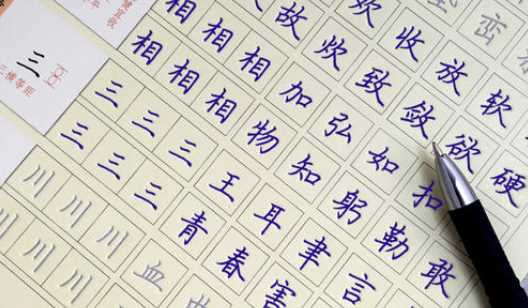 峦
欢 收 放 软
故 炊 致 敛 欲 硬
相 相 相 加 弘 如 扣
相 相 相 物 知 躬 勒 敢
三
三横等距
三 三 三 王 耳 聿 言
三 三 三 青 春 害
川 川 川 血
川 川 川